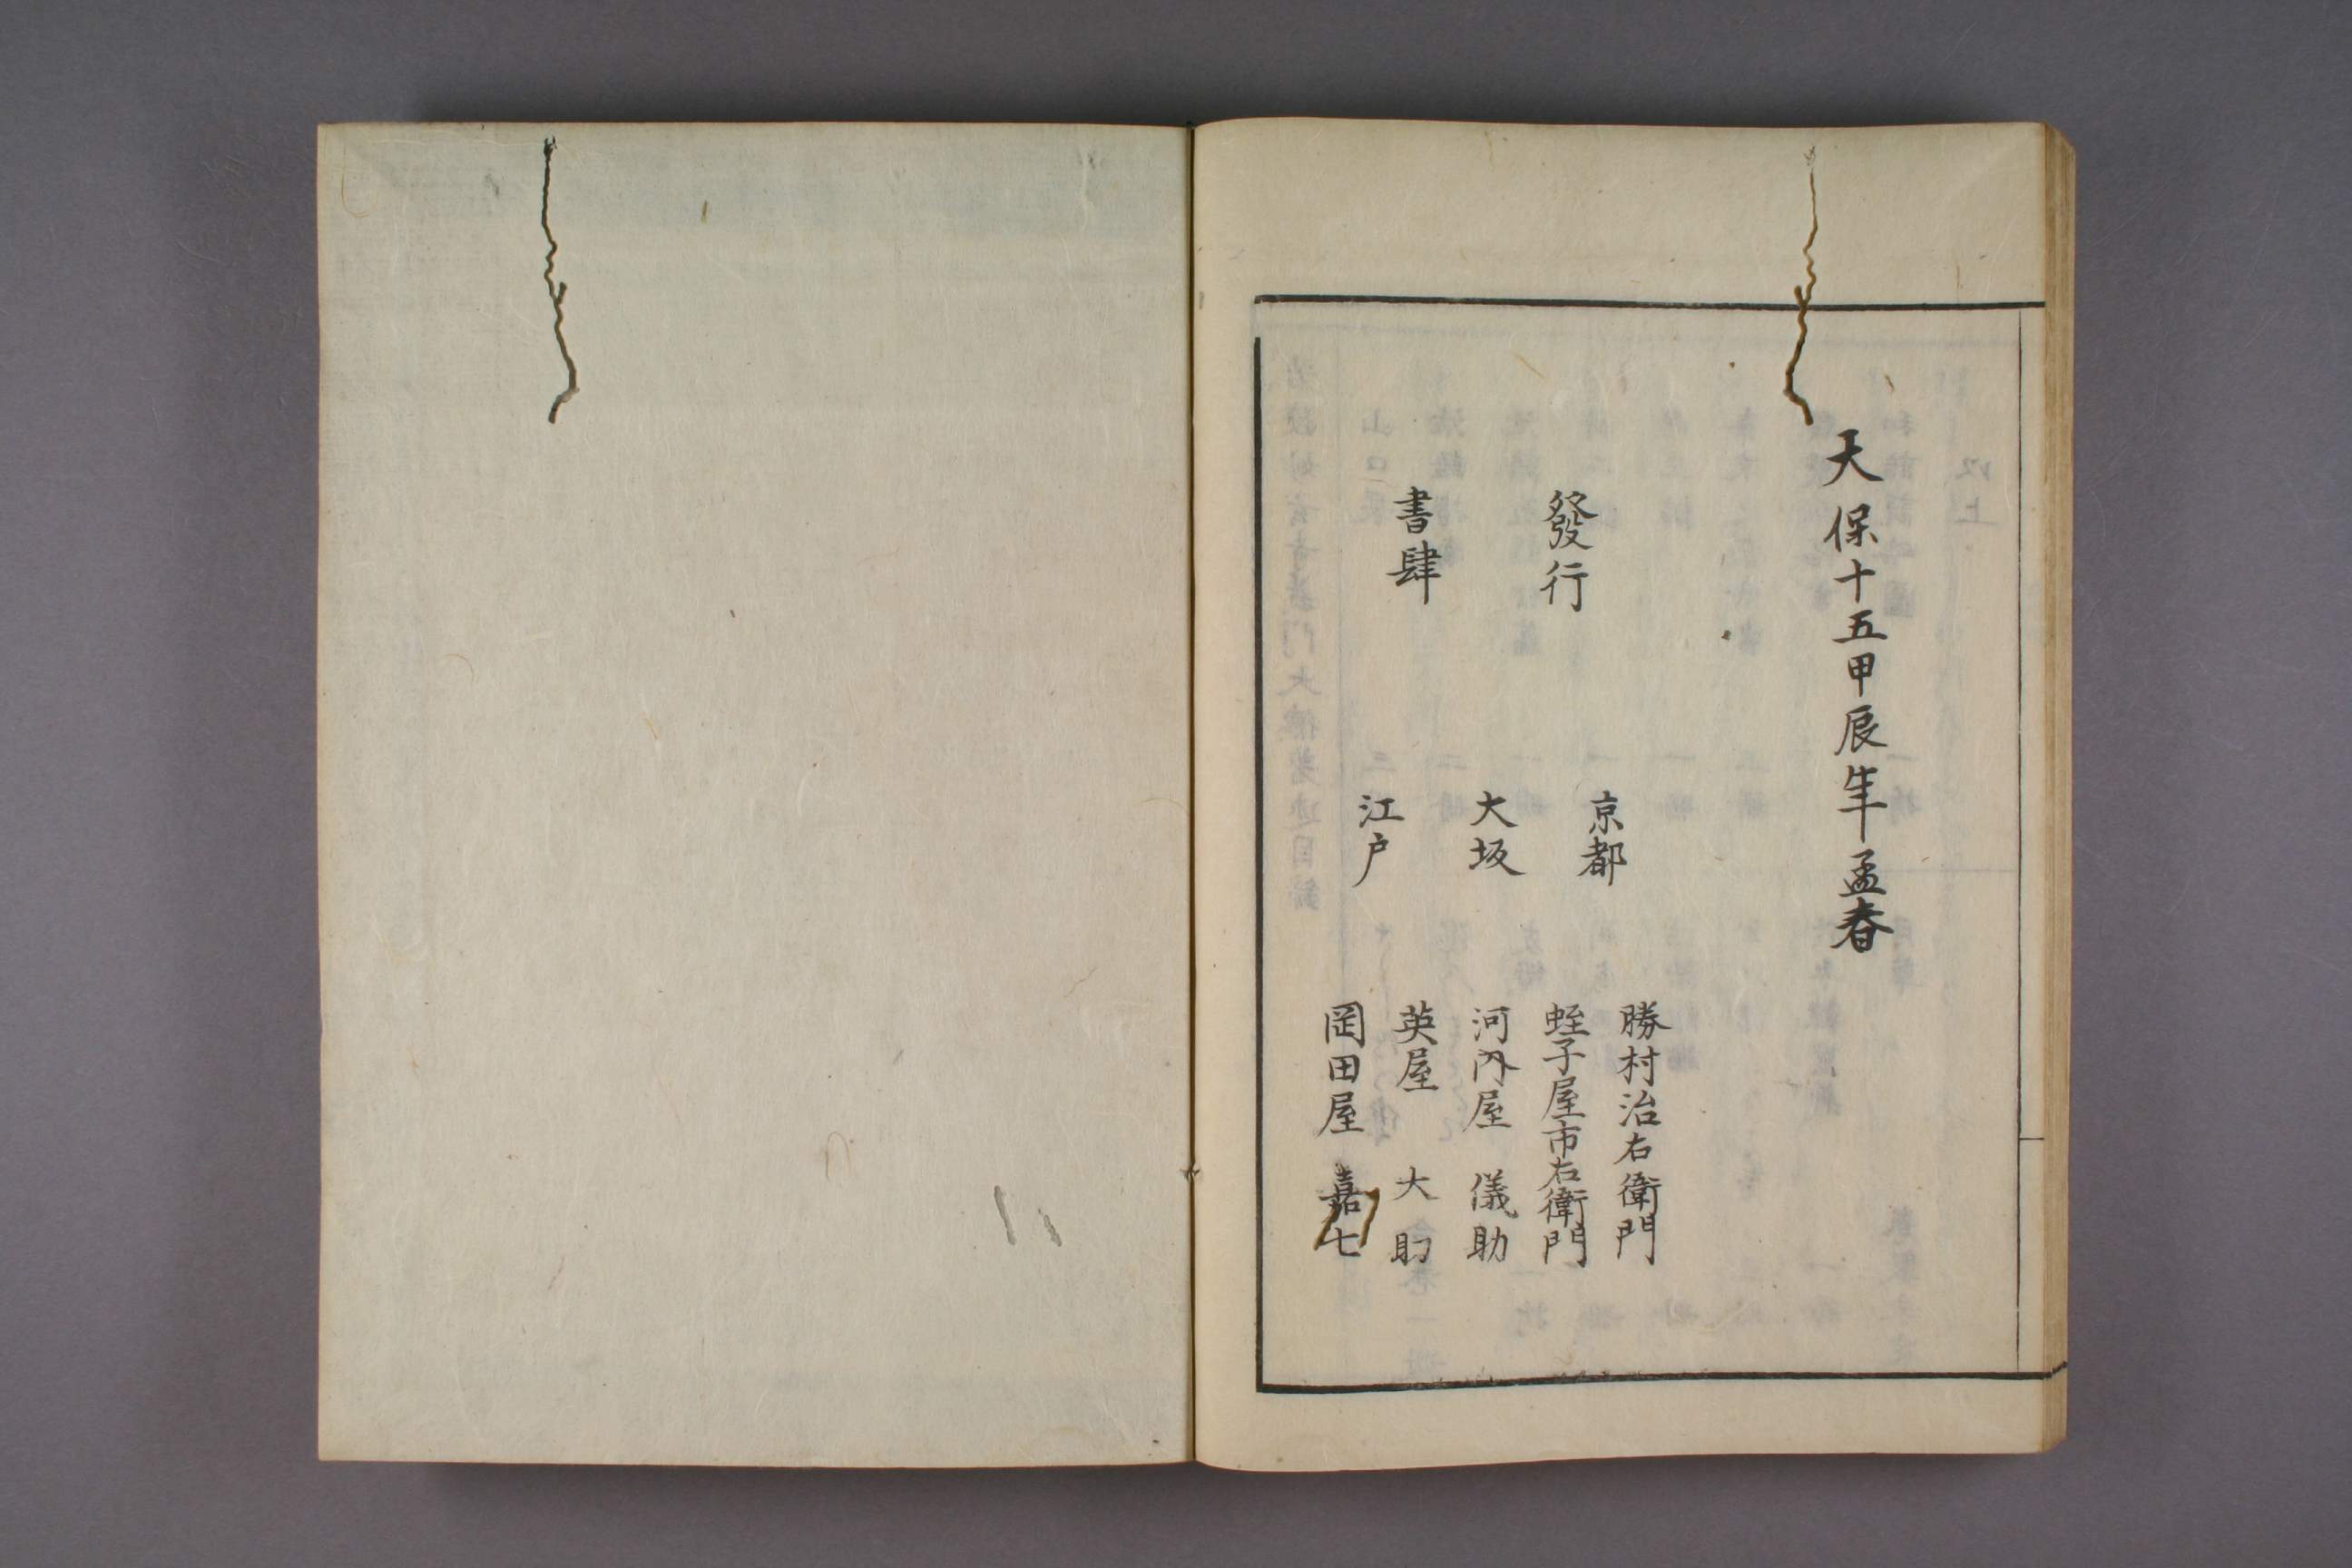 天保十五甲辰年孟春
發行
書肆
京都
大坂
江戸
勝村治右衛門
蛭子屋市右衛門
河内屋 儀助
英屋 大助
岡田屋 嘉七